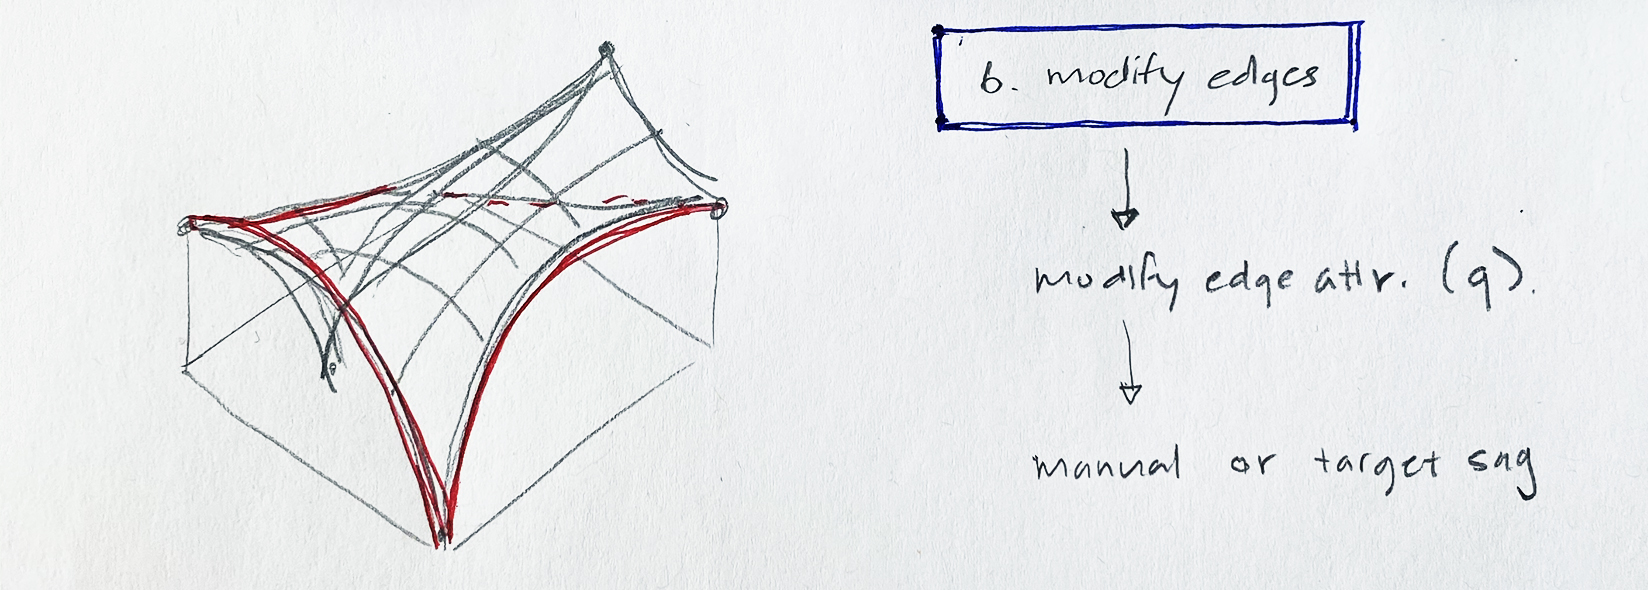 6. modify edges
modify edge attr. (q).
manual or target sag